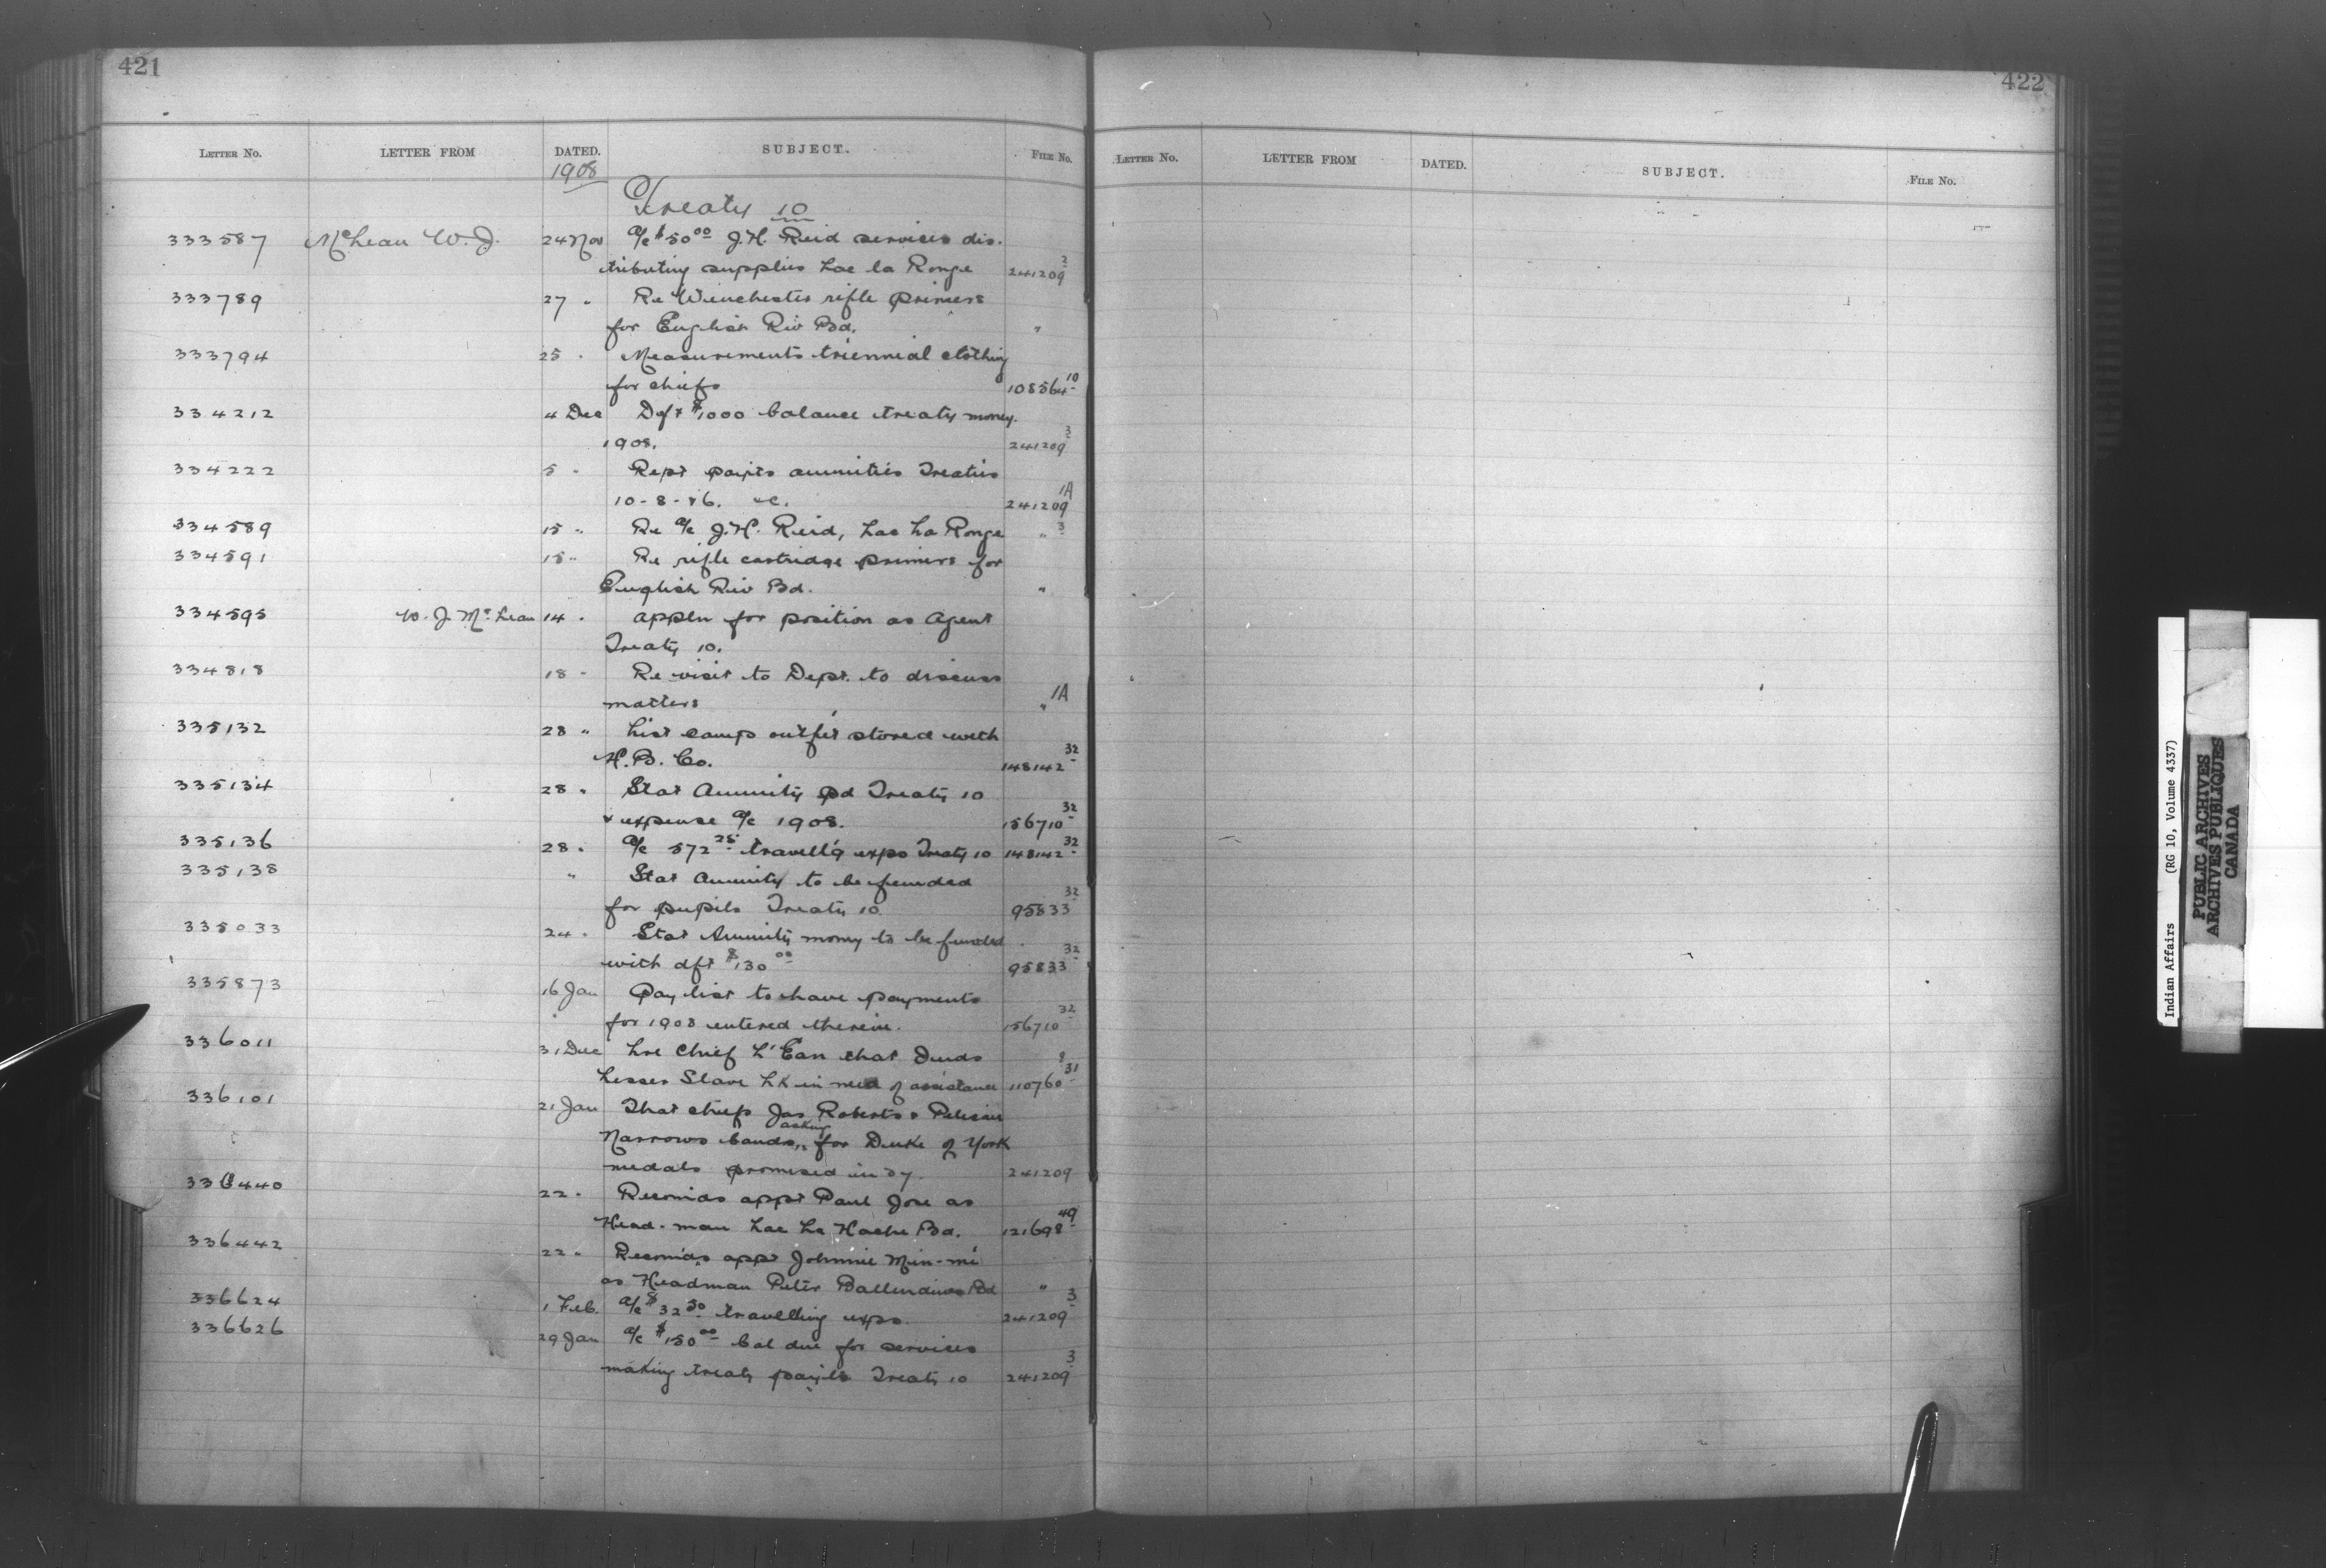 421
LETTER No. LETTER FROM DATED. SUBJECT. FILE No.
1908
Treaty 10
333587 McLean W. J. 24 Nov a/c $50 00 J. H. Reid services dis-
tributing supplies Lac la Ronge 241209 2
333789 27 " Re Winchester rifle primers
for English Riv Bd. "
333794 25 " Measurements triennial clothing
for chiefs 108564 10
334212 4 Dec Dft $1000 balance treaty money
1908. 241209 3
334222 5 " Rept paymts annuities Treaties
10-8-&6. &c. 241209 1A
334589 15 " Re a/c J. H. Reid, Lac La Ronge " 3
334591 15 " Re rifle cartridge primers for
English Riv Bd. "
334595 W. J. McLean 14 " appln for position as Agent
Treaty 10.
334818 18 " Re visit to Dept. to discuss
matters " 1A
335132 28 " List camp outfit stored with
H. B. Co. 148142 32
335134 28 " Stat Annuity pd Treaty 10
& expense a/c 1908. 156710 32
335136 28 " a/c 572 25 travell'g exps Treaty 10 148142 32
335138 " Stat annuity to be funded
for pupils Treaty 10 95833 32
335033 24 " Stat Annuity money to be funded
with dft $130 00 95833 32
335873 16 Jan Pay list to have payments
for 1908 entered therein. 156710 32
336011 31 Dec Lre Chief that Inds
Lesser Slave Lk in need of assistance 110760 31
336101 21 Jan That chiefs Jas Roberts & Pelican
Narrows bands, asking for Duke of York
medals promised in 07. 241209
336440 22 " Recomds appt Paul Jore as
Head-man Lac La Hache Bd. 121698 49
336442 22 " Recomds appt Johnnie Min-mi
as Headman Peter Ballendines Bd "
336624 1 Feb. a/c $32 50 travelling exps. 241209 3
336626 29 Jan a/c $150 00 bal due for services
making treaty paymts Treaty 10 241209 3
422
LETTER No. LETTER FROM DATED. SUBJECT. FILE No.
Indian Affairs (RG 10, Volume 4337)
PUBLIC ARCHIVES
ARCHIVES PUBLIQUES
CANADA